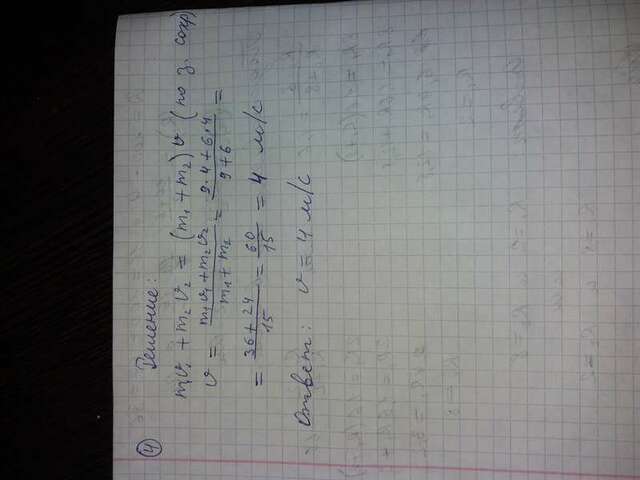 ④ Решение:
m₁v₁ + m₂v₂ = (m₁ + m₂)v (по з. сохр)
v = (m₁v₁ + m₂v₂)/(m₁ + m₂) = (9·4 + 6·4)/(9 + 6) =
= (36 + 24)/15 = 60/15 = 4 м/с
Ответ: v = 4 м/с